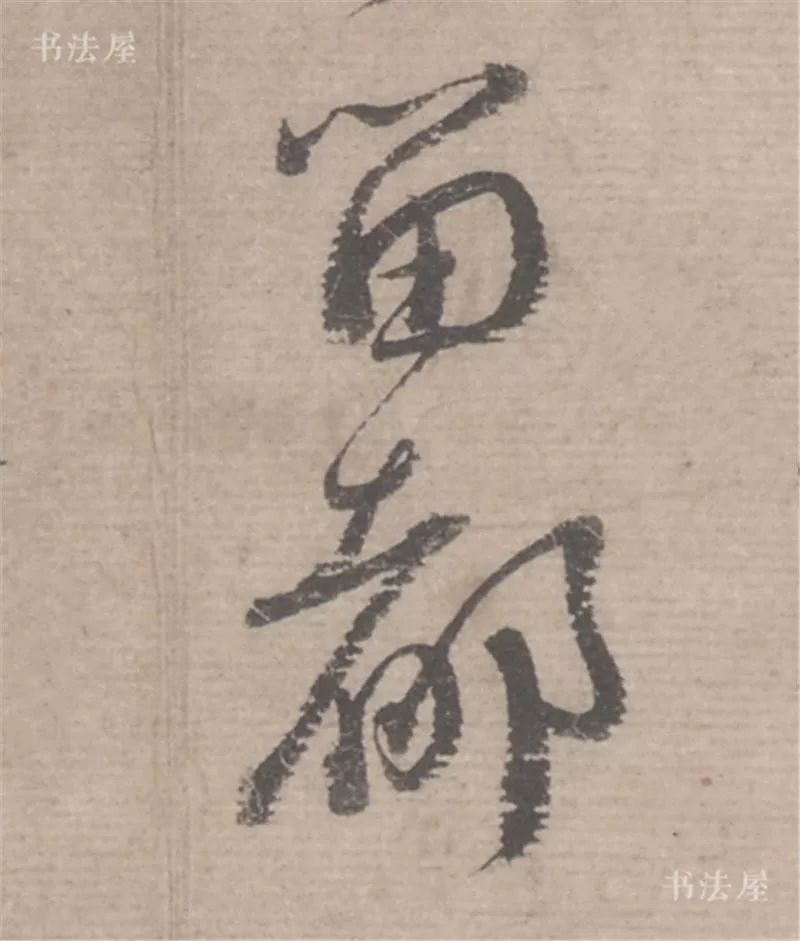 书法屋
留都
书法屋